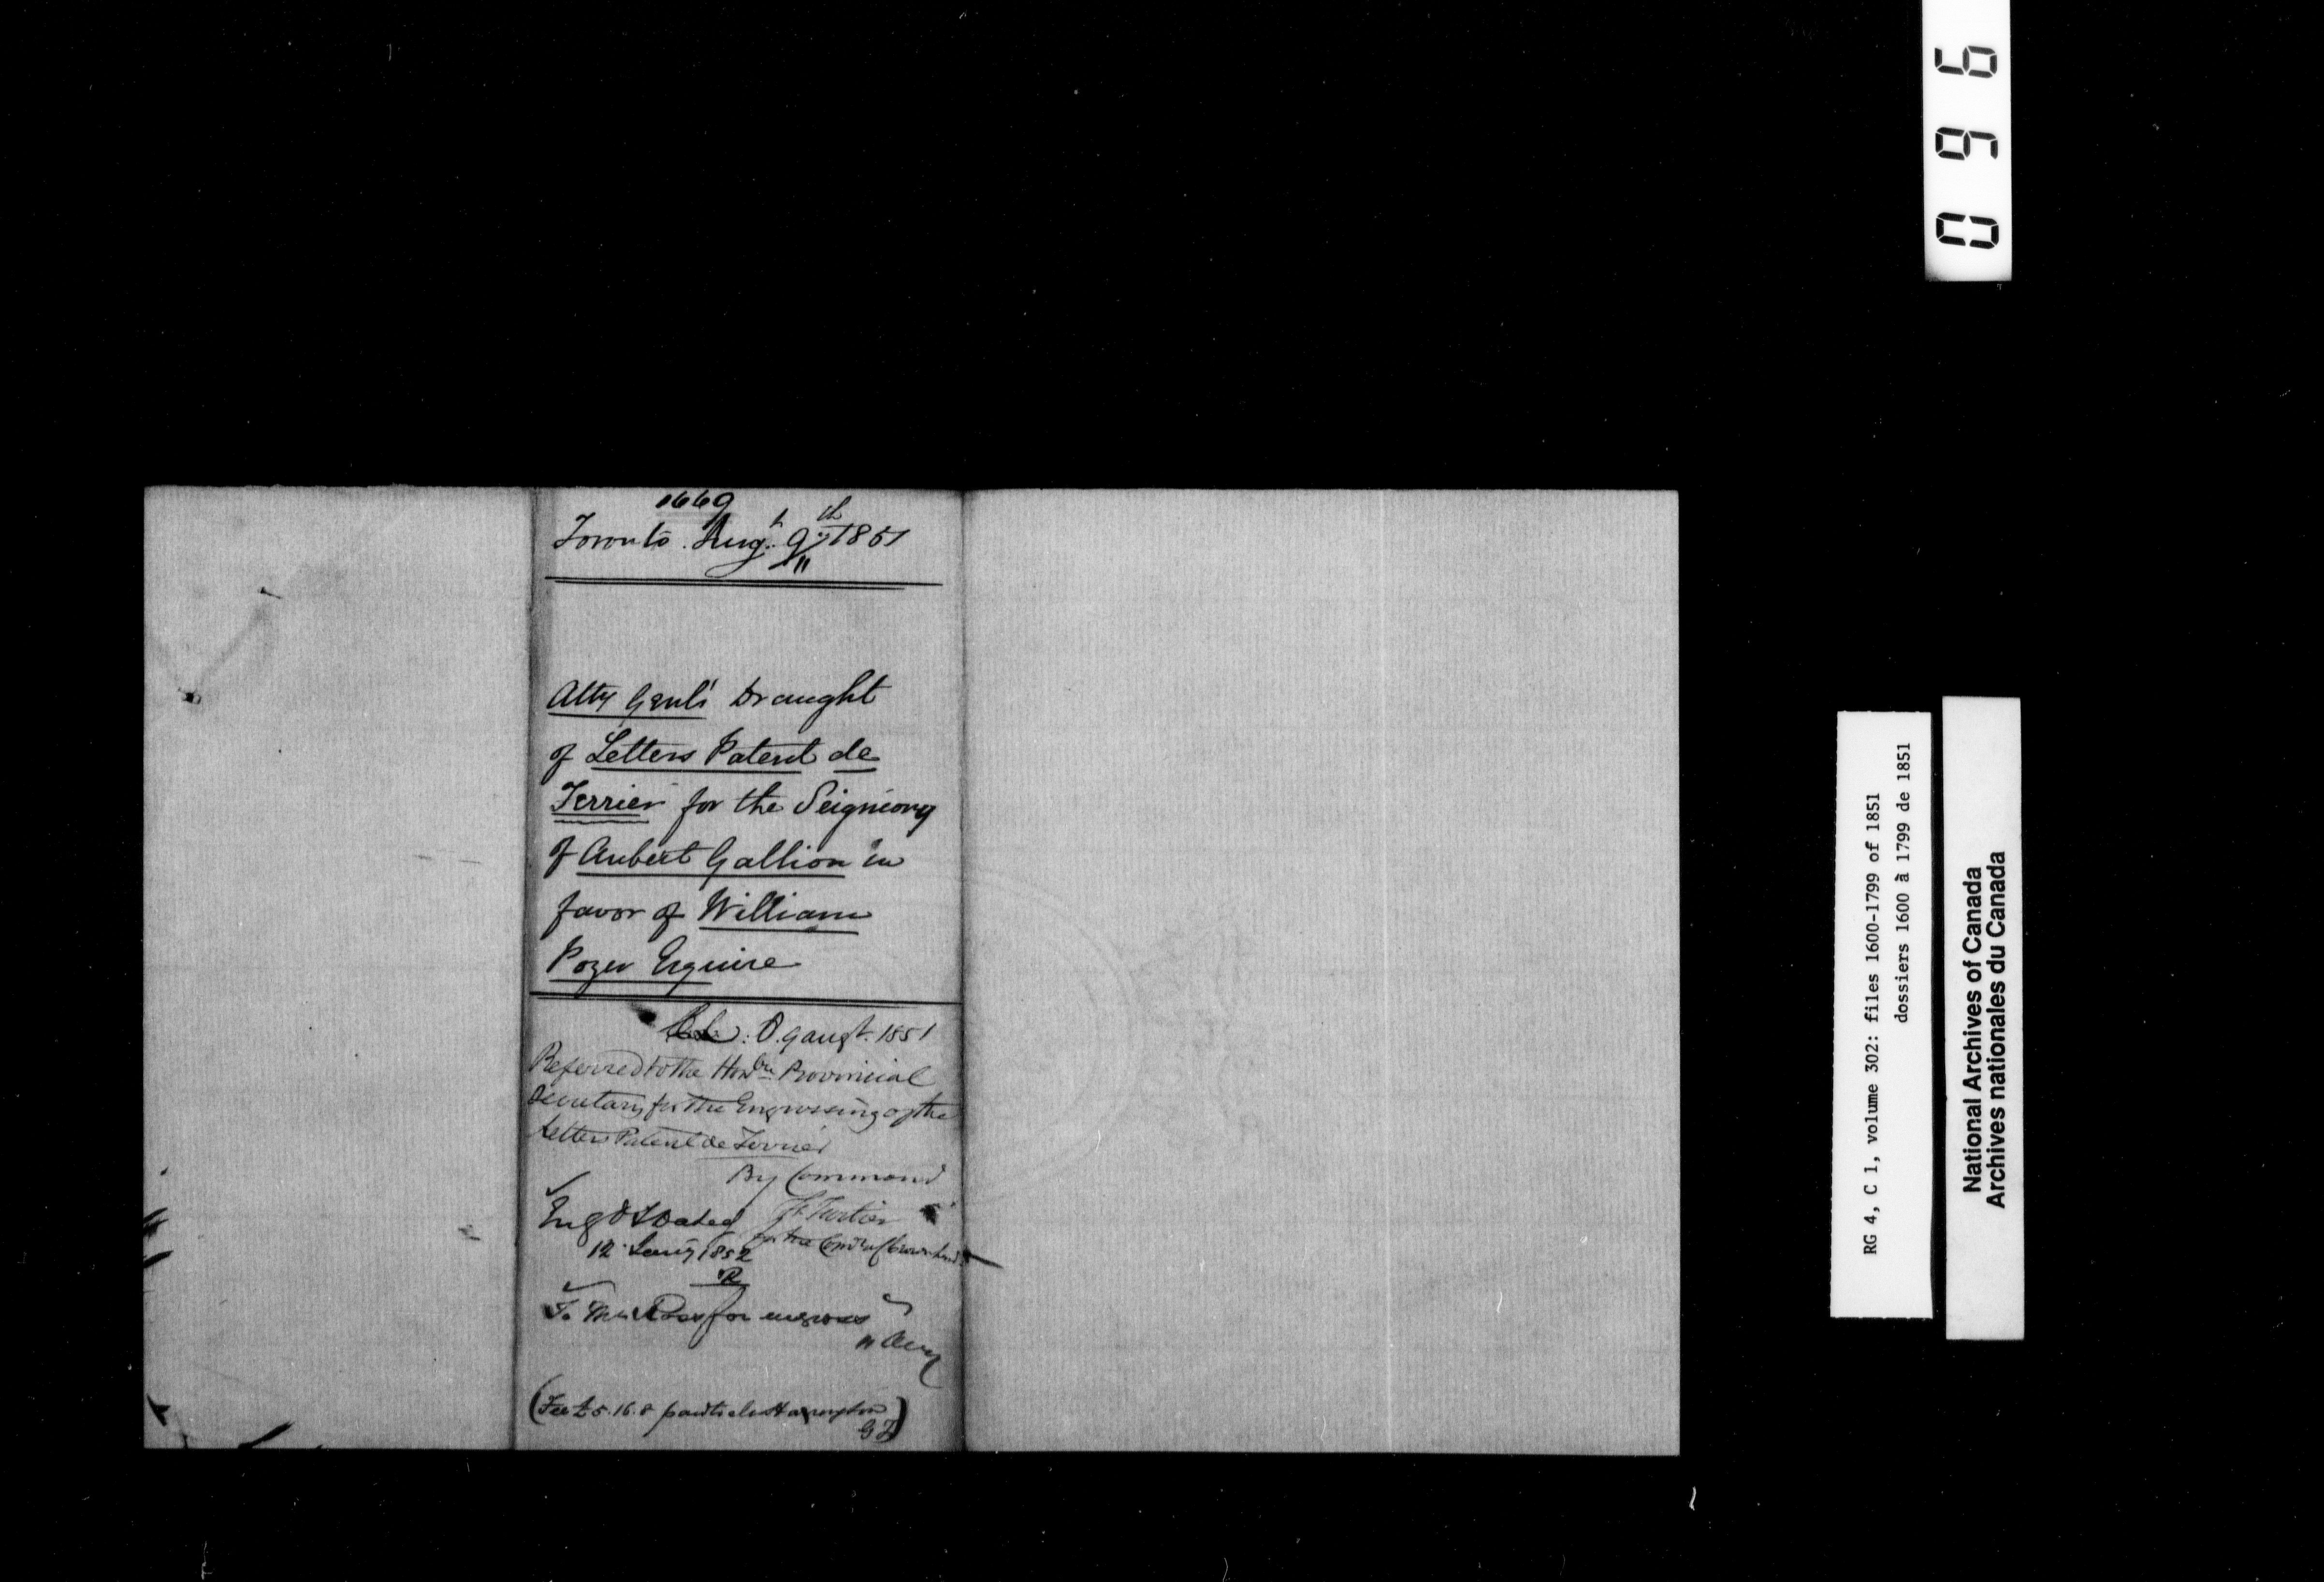 1669
Toronto. Augt. 9th 1851
Atty Genl's Draught
of Letters Patent de
Terrier for the Seigniory
of Aubert Gallion in
favor of William
Pozer Esquire
C.L.O. 9 augt. 1851
Referred to the Honble Provincial
Secretary for the Engrossing of the
Letters Patent de Terrier
By Command
Engd & Dated
12 1852
for the Comr of Crown Lands
To Mr Ross for engross
(Fee £5.16.8 paid
0 9 6
RG 4, C 1, volume 302: files 1600-1799 of 1851
dossiers 1600 à 1799 de 1851
National Archives of Canada
Archives nationales du Canada